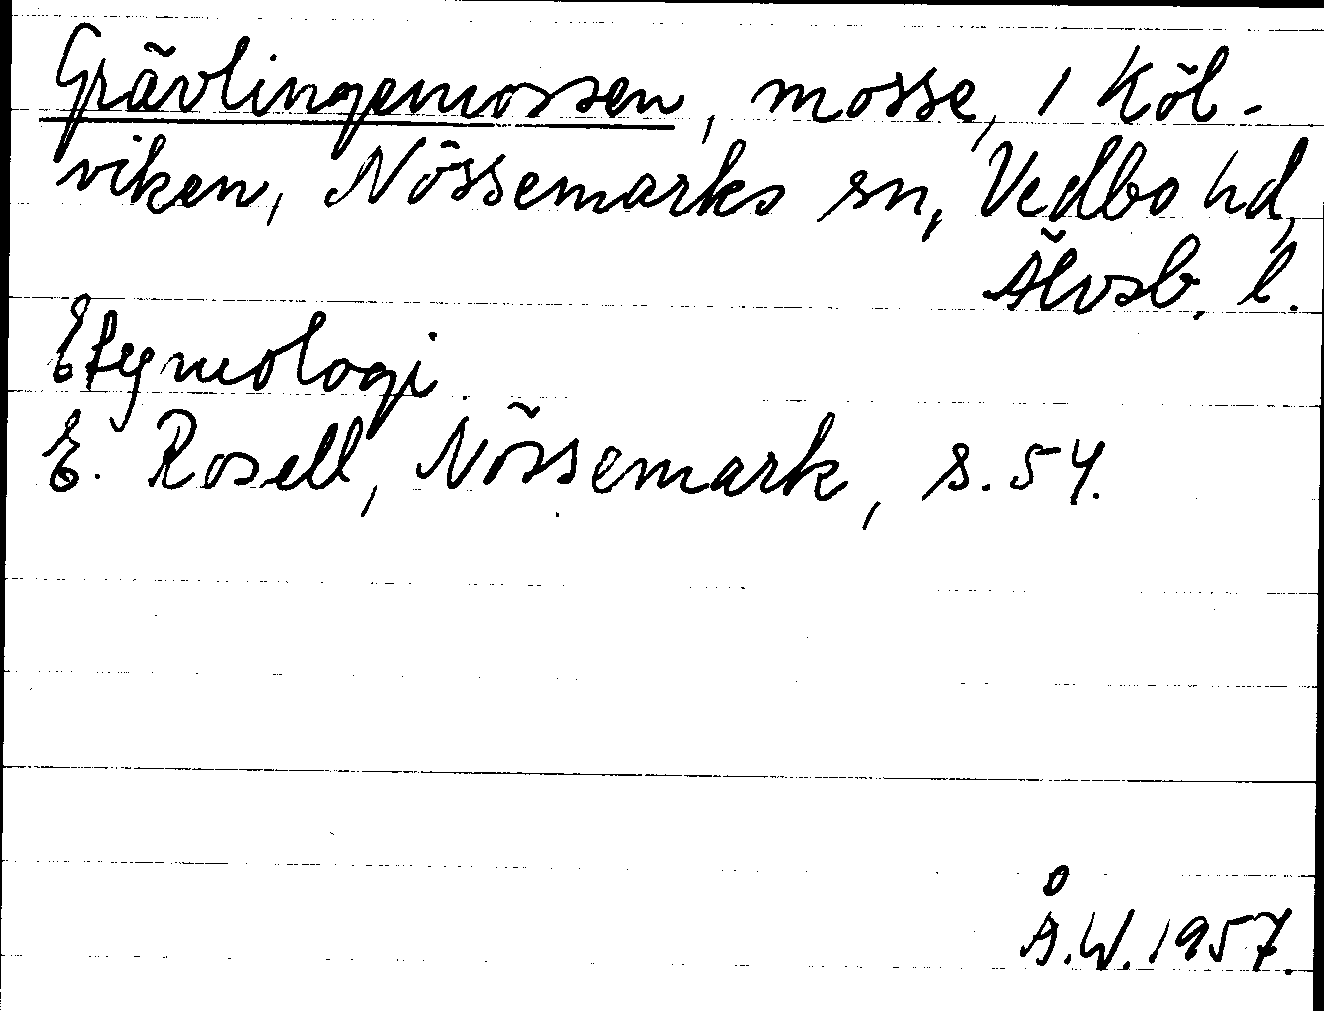 Grävlingemossen, mosse, 1 Köl-
viken, Nössemarks sn, Vedbo hd,
Älvsb. l.
Etymologi
E. Rosell, Nössemark, s. 54.
Å.W. 1957.